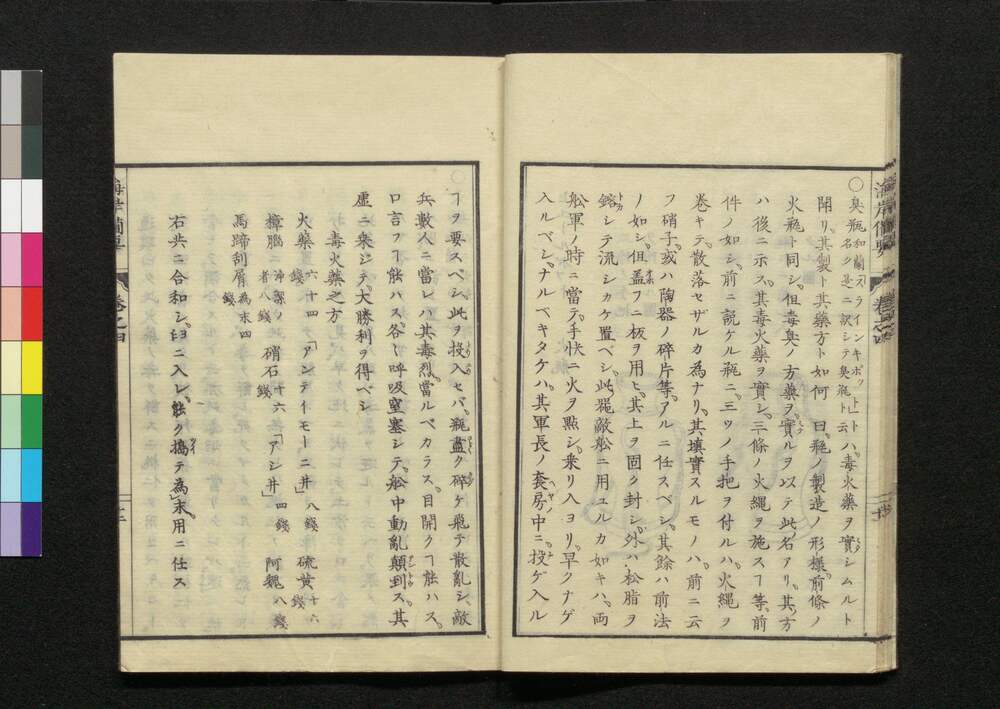 ○臭瓶和蘭「スラインキポット」トハ毒火薬ヲ實シムルト
名ク是ニ訳シテ臭瓶ト云
聞リ。其製ト其薬方ト如何 曰。瓶ノ製造ノ形様。前條ノ
火瓶ト同シ。但毒臭ノ方薬ヲ實ルヲ以テ此名アリ。其方
ハ後ニ示ス。其毒火薬ヲ實シ。三條ノ火縄ヲ施スヿ等。前
件ノ如シ。前ニ説ケル瓶ニ。三ツノ手把ヲ付ルハ。火縄ヲ
巻キテ。散落セザルカ為ナリ。其填實スルモノハ。前ニ云
フ硝子。或ハ陶器ノ碎片等。アルニ任スベシ。其餘ハ前法
ノ如シ。但盖フニ板ヲ用ヒ。其上ヲ固ク封シ。外ハ松脂ヲ
鎔シテ流シカケ置ベシ。此瓶敵舩ニ用ユルカ如キハ。両
舩軍ノ時ニ當テ。手快ニ火ヲ點シ。乗リ入ヨリ。早クナゲ
入ルベシ。ナルベキタケハ。其軍長ノ套房中ニ。投ケ入ル
海岸備要 巻之四
ヿヲ要スベシ。此ヲ投入セバ。瓶盡ク碎ケ飛テ散亂シ。敵
兵數人ニ當レハ其毒烈。當ルベカラス。目開クヿ能ハス。
口言フヿ能ハス。各〻呼吸窒塞シテ。舩中動亂顛到ス。其
虚ニ乗ジテ。大勝利ヲ得ベシ
毒火薬之方
火薬 六十四錢 「アンテイモーニ井」 八錢 硫黄 十六錢
樟脳 八錢 硝石 十六錢 「アシ井」 四錢 阿魏 八錢
馬蹄刮屑 為末四錢
右共ニ合和シ。臼ニ入レ。能ク搗テ為末。用ニ仕ス
海岸備要 巻之四